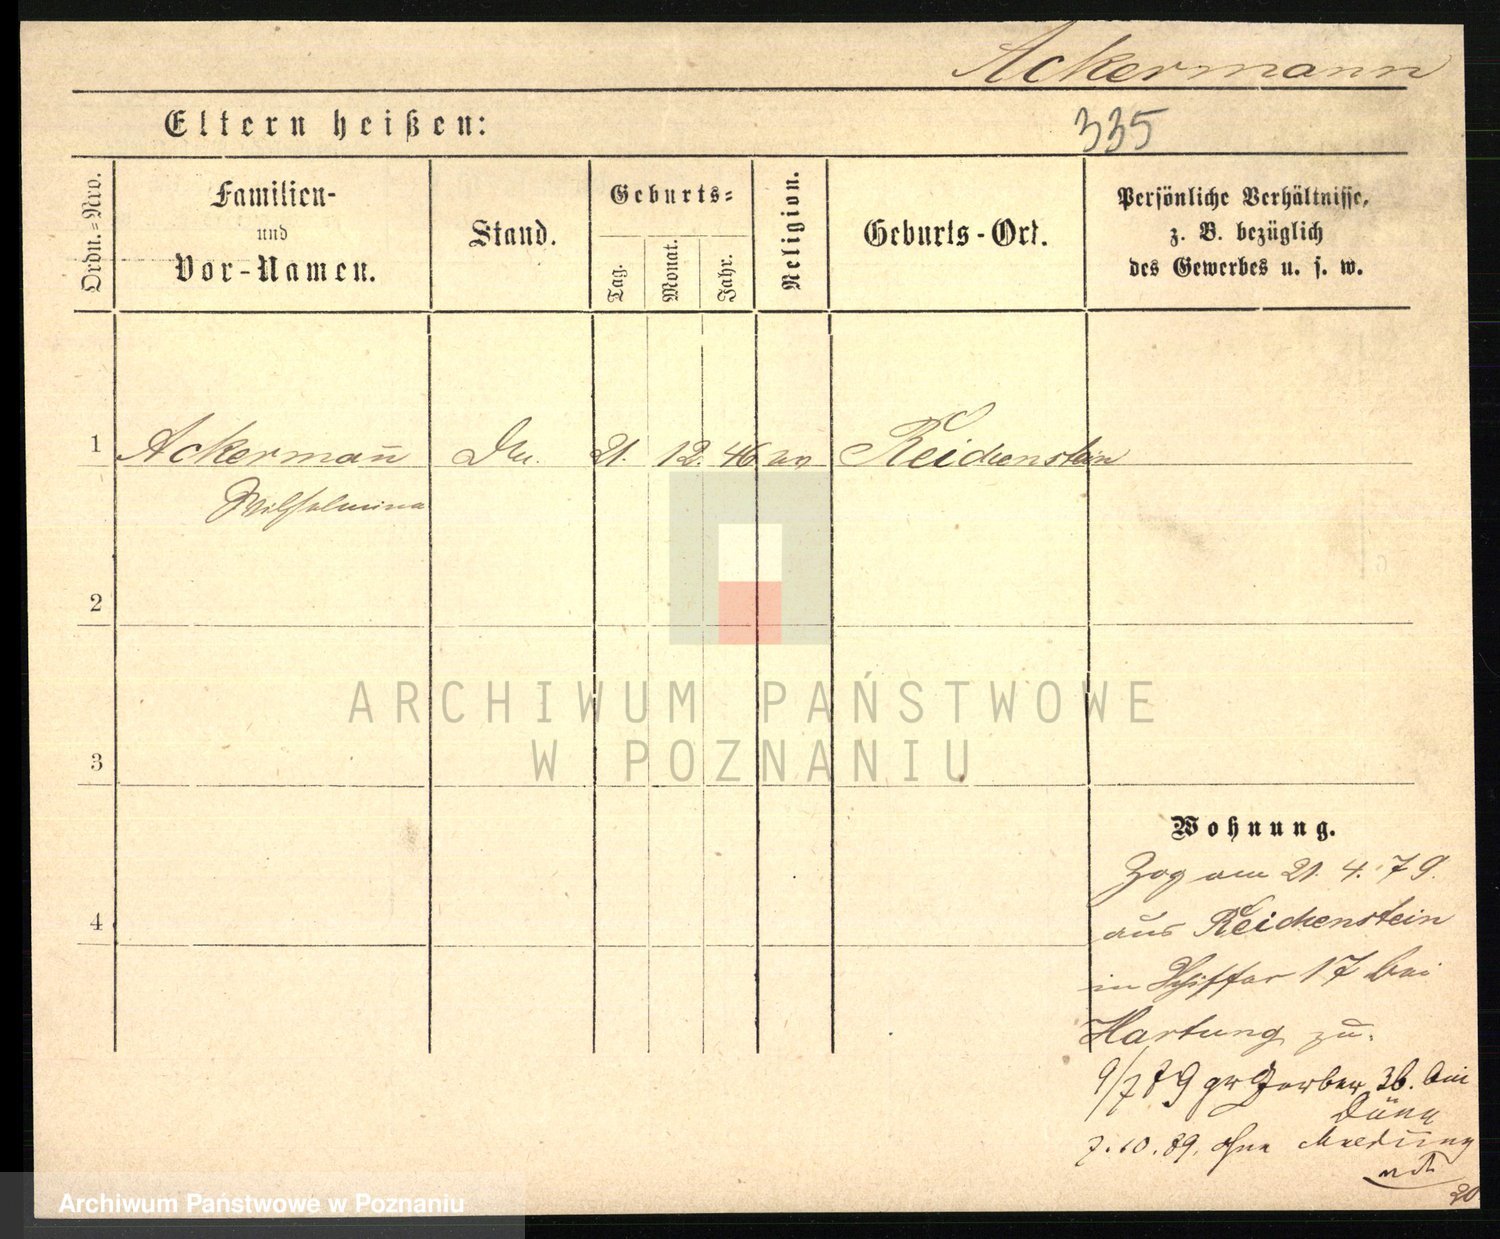 Ackermann
Eltern heißen:
335
Ordn.-Nro.
Familien-
und
Vor-Namen.
Stand.
Geburts-
Tag.
Monat.
Jahr.
Religion.
Geburts-Ort.
Persönliche Verhältnisse,
z. B. bezüglich
des Gewerbes u. s. w.
1 Ackermañ 21. 12. 46 Reichenstein
Wilhelmina
2
ARCHIWUM PAŃSTWOWE
W POZNANIU
3
Wohnung.
Zog am 21. 4. 79.
4
aus Reichenstein
in 17 bei
Hartung zu.
gr Gerber 36. bei
7.10.89. ohne Meldung
20
Archiwum Państwowe w Poznaniu